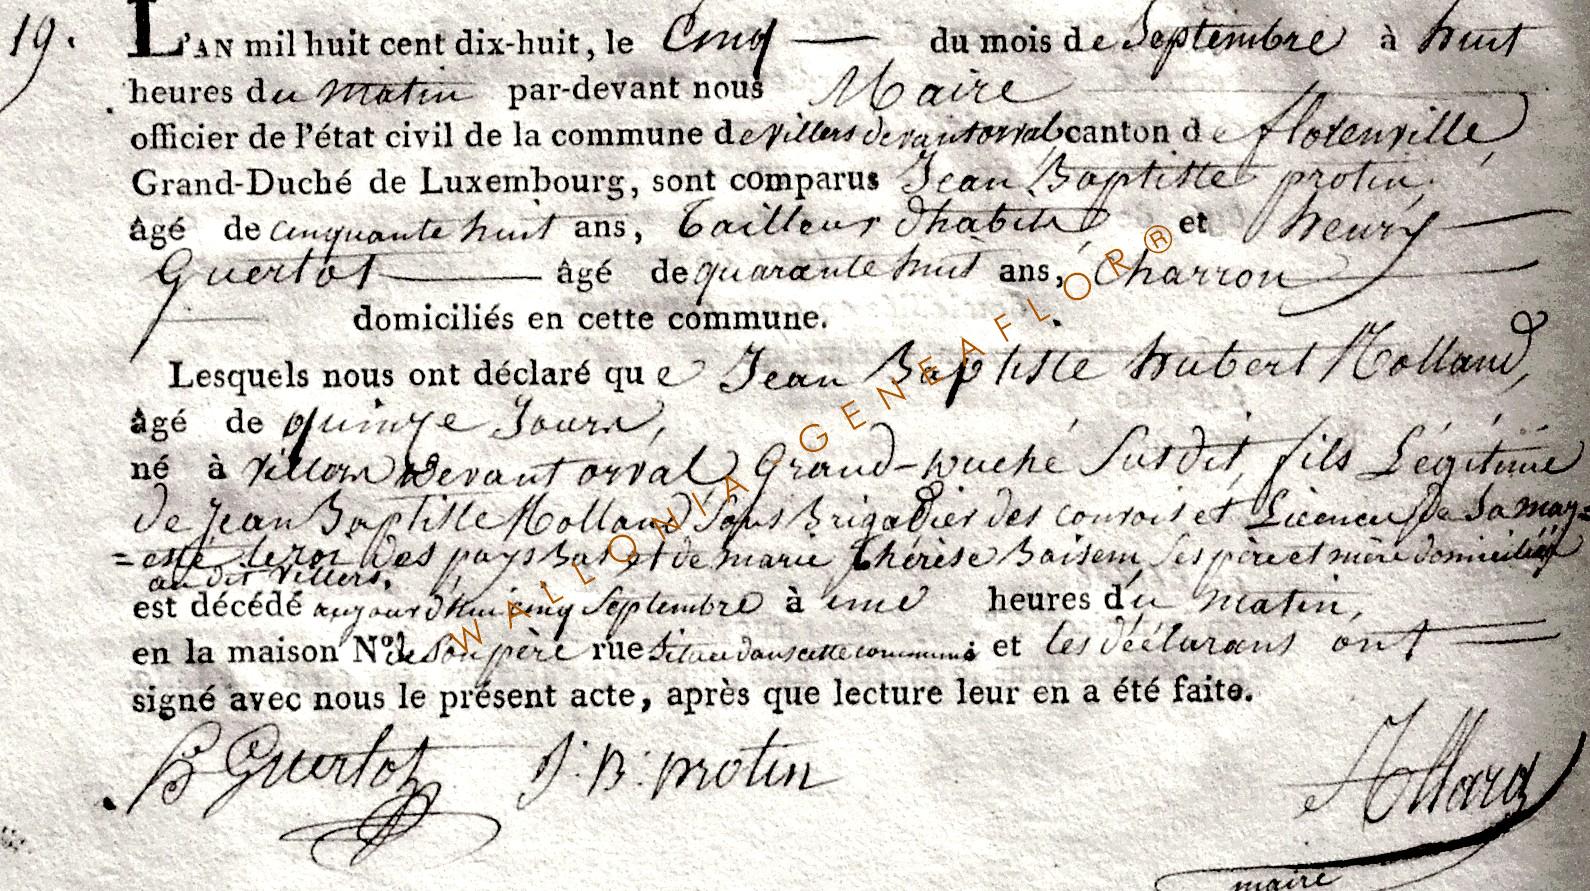 19.
L'AN mil huit cent dix-huit, le Cinq du mois de Septembre à huit
heures du matin par-devant nous Maire
officier de l'état civil de la commune de villers devant orval canton de florenville
Grand-Duché de Luxembourg, sont comparus Jean Baptiste protin,
âgé de cinquante huit ans, tailleur d'habits, et henry
Guerlot âgé de quarante huit ans, Charron
domiciliés en cette commune.
Lesquels nous ont déclaré que Jean Baptiste hubert Molland,
âgé de quinze Jours,
né à villers devant orval Grand-Duché Susdit, fils Légitime
de Jean Baptiste Molland Sous Brigadier des et de Sa may=
=esté le roi des pays Bas et de marie thérèse Ses père et mère domiciliés
au dit villers,
est décédé aujourd'hui cinq Septembre à une heures du matin,
en la maison No. de Son père rue Située dans cette commune et les déclarans ont
signé avec nous le présent acte, après que lecture leur en a été faite.
h Guerlot J. B. protin
maire
WALLONIA GENEAFLOR®